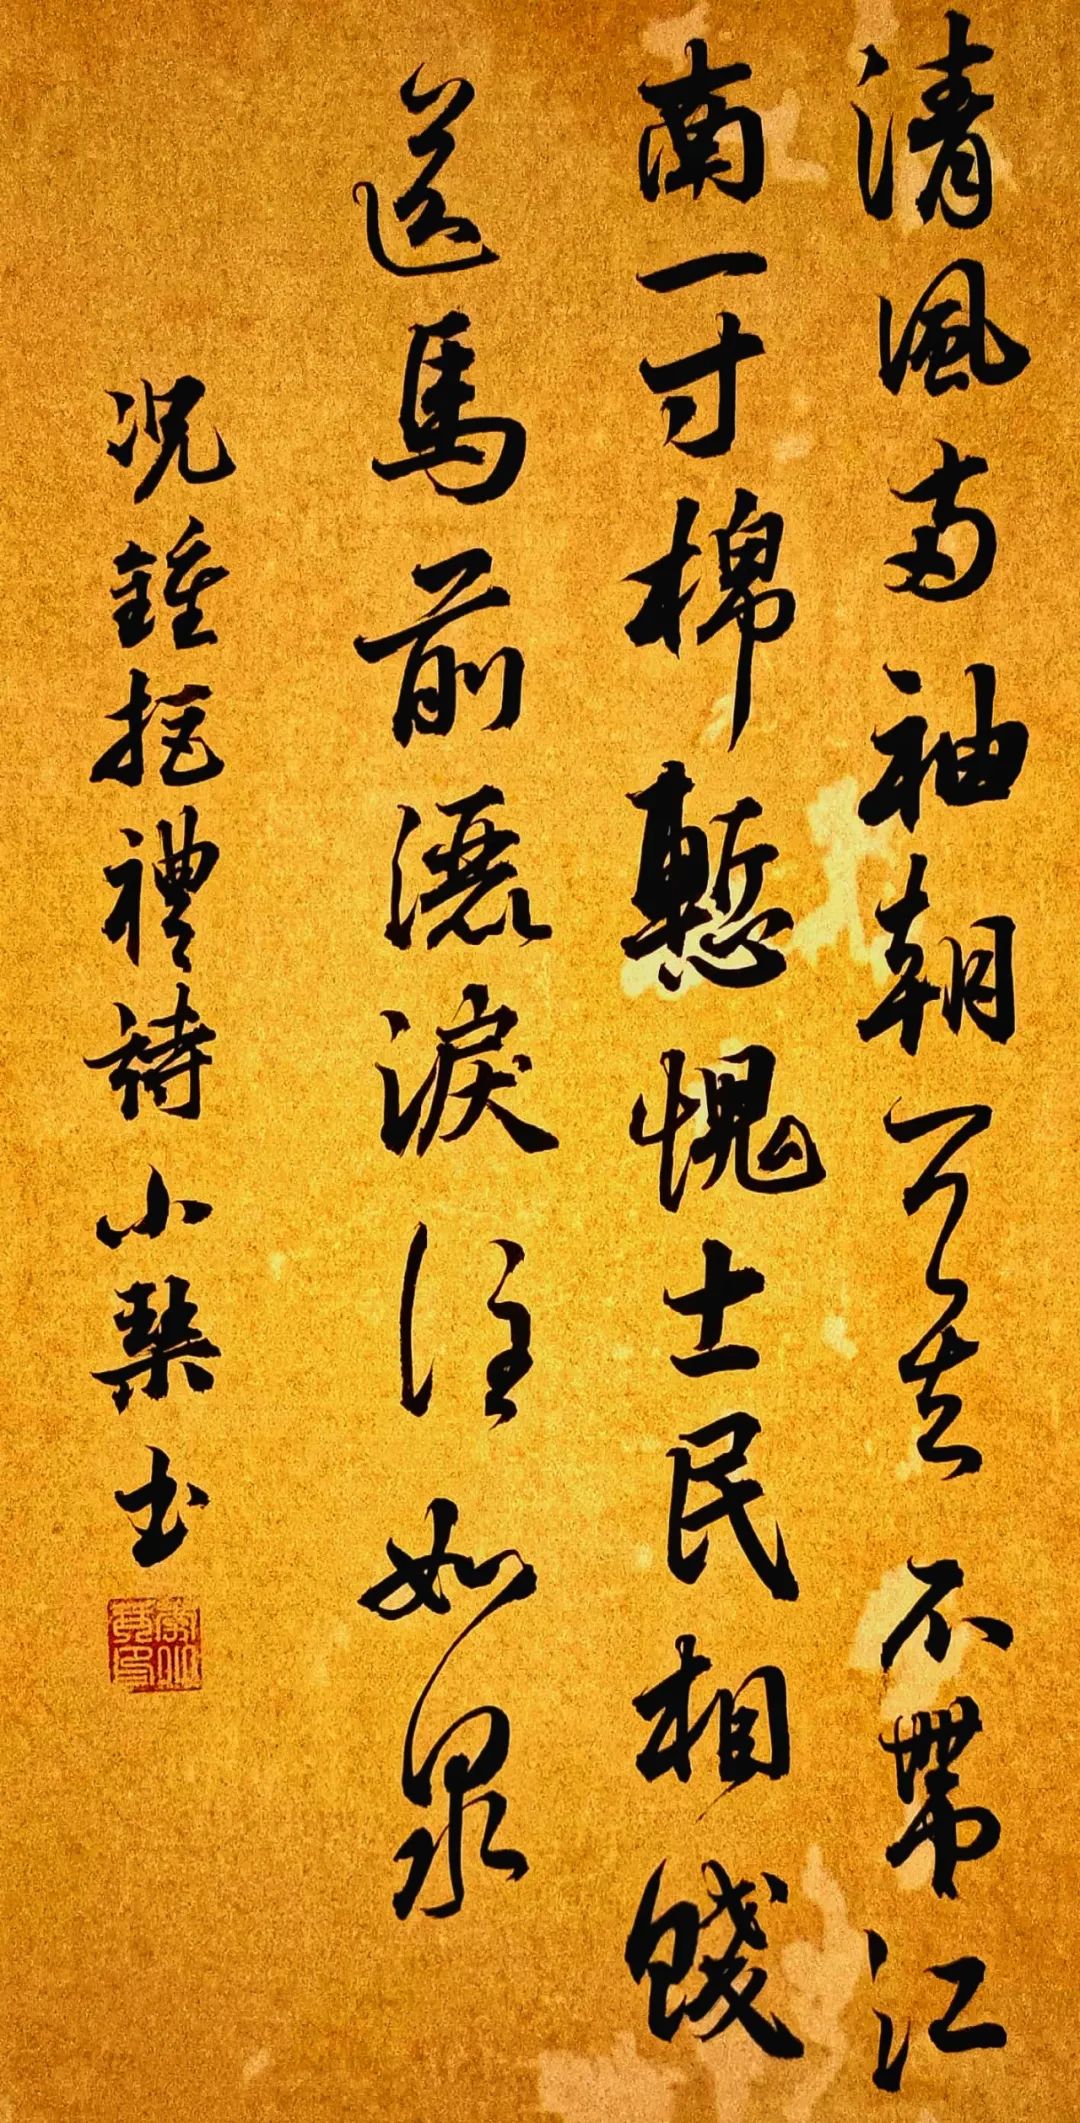 清風两袖朝天去不帶江
南一寸棉慙愧士民相餞
送馬前灑淚注如泉
况鍾拒禮詩小琹书